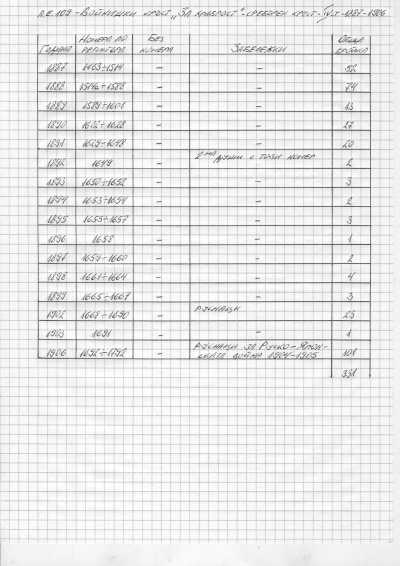 Л.Е. 109 - Войнишки кръст "За храброст" - сребърен кръст - IV ст. 1887-1906
Година Номера по регистъра Без номера Забележки Обща бройка
1887 1463÷1514 – – 52
1888 – – 74
1889 1589÷1601 – – 13
1890 – – 27
1891 1629÷1648 – – 20
1892 1649 – 2ма души с този номер 2
1893 1650÷1652 – – 3
1894 1653÷1654 – – 2
1895 1655÷1657 – – 3
1896 1658 – – 1
1897 1659÷1660 – – 2
1898 1661÷1664 – – 4
1899 1665÷1667 – – 3
1902 – Руснаци 23
1903 1691 – – 1
1906 1692÷1792 – Руснаци за Руско-Япон-
ската война 1904-1905 101
331